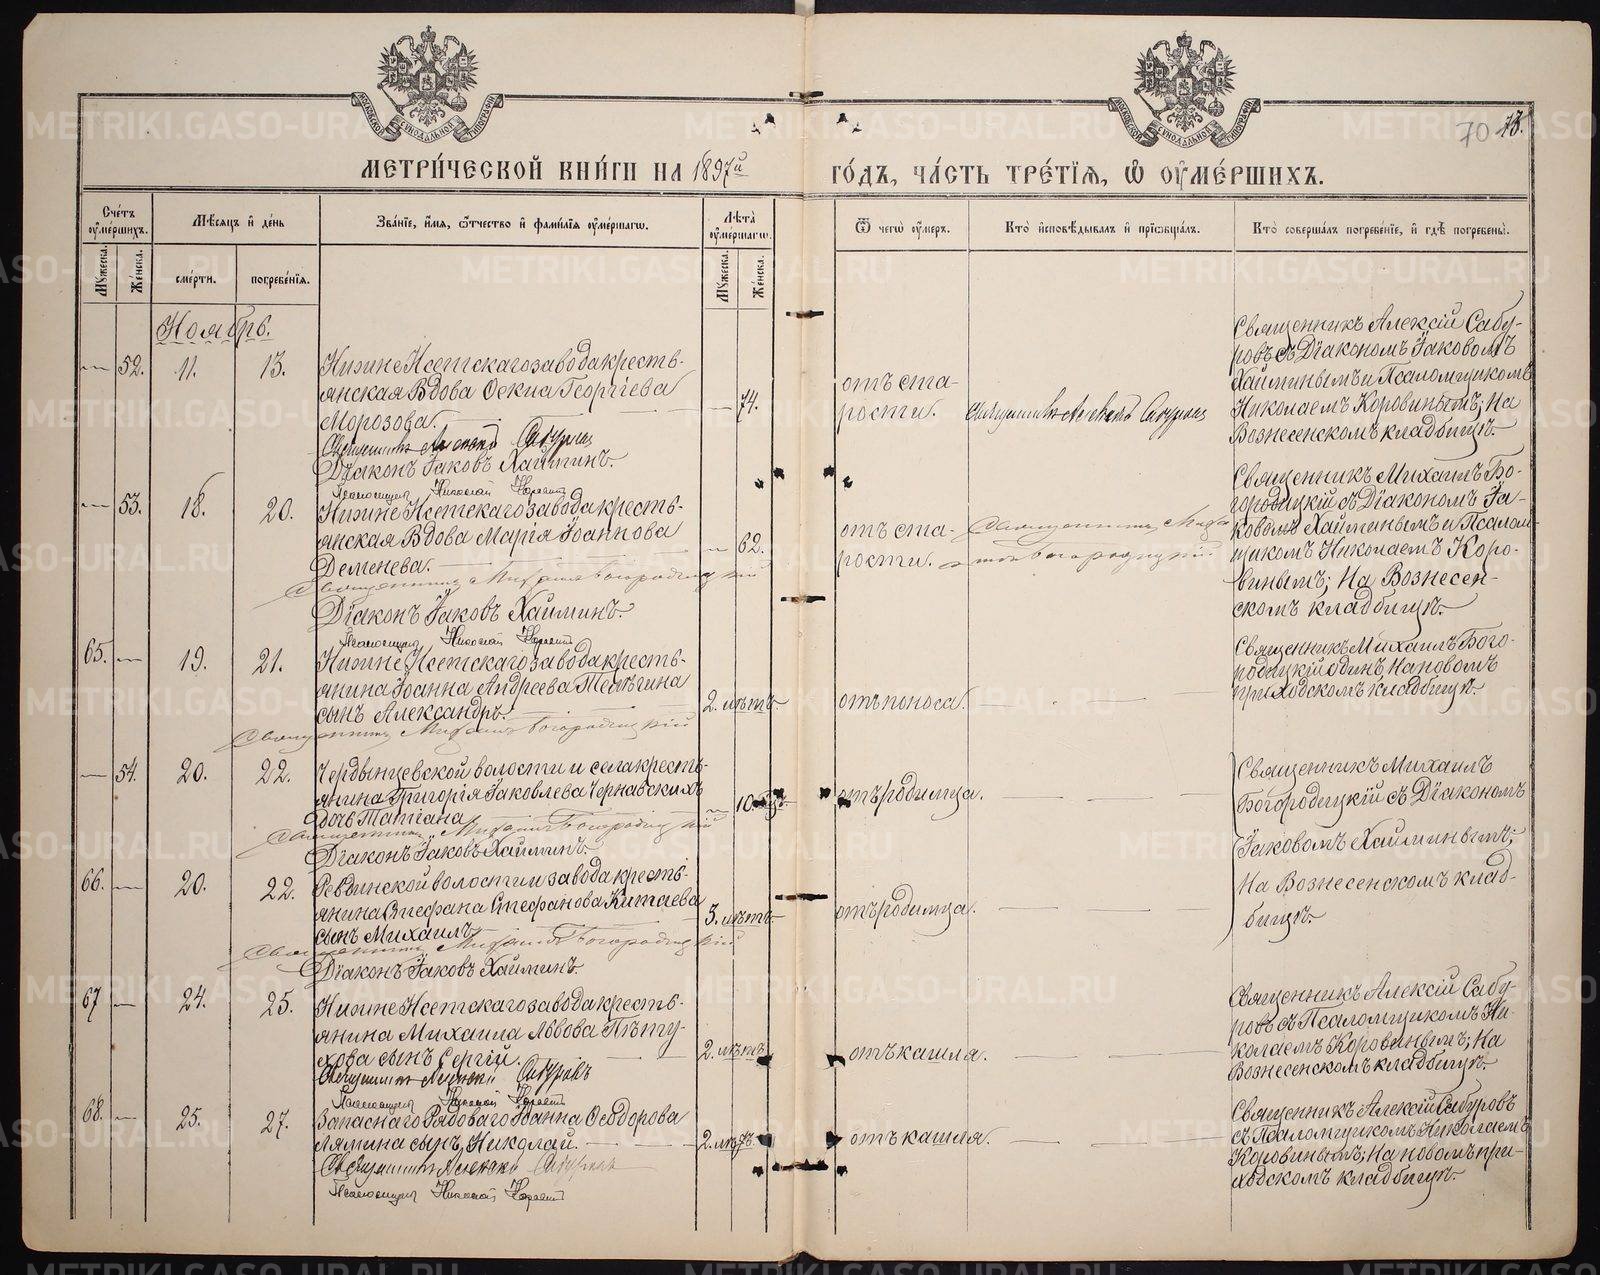 МЕТРИ́ЧЕСКОЙ КНИ́ГИ НА 1897й
ГО́ДЪ, ЧА́СТЬ ТРЕ́ТІЯ, Ѿ ОУМЕ́РШИХЪ.
70 13.
Сче́тъ оуме́ршихъ.
Мѣ́сяцъ и де́нь
Зва́ніе, и́мя, ѻ́тчество и фами́лія оуме́ршагѡ.
Лѣта̀ оуме́ршагѡ.
Ѿ чегѡ̀ оу́меръ.
Кто̀ исповѣ́дывалъ и прїѡбща́лъ.
Кто̀ соверша́лъ погребе́ніе, и гдѣ̀ погребены̀.
Мужеска.
Же́нска.
сме́рти.
погребе́нія.
Му́жеска.
Же́нска.
Ноябрь.
52.
11.
13.
Нижне Исетскаго завода кресть-
янская Вдова Ѳекла Георгіева
Морозова.
Священникъ Алексій Сабуровъ
Діаконъ Іаковъ Хайминъ.
Псаломщикъ Николай Коровинъ
74.
отъ ста-
рости.
Священникъ Алексій Сабуровъ
Священникъ Алексій Сабу-
ровъ съ Діакономъ Іаковомъ
Хайминымъ и Псаломщикомъ
Николаемъ Коровинымъ; На
Вознесенскомъ кладбищѣ.
53.
18.
20.
Нижне Исетскаго завода кресть-
янская Вдова Марія Іоаннова
Деменева.
Священникъ Михаилъ Богородицкій
Діаконъ Іаковъ Хайминъ.
Псаломщикъ Николай Коровинъ
62.
отъ ста-
рости.
Священникъ Миха-
илъ Богородицкій
Священникъ Михаилъ Бо-
городицкій съ Діакономъ Іа-
ковомъ Хайминымъ и Псалом-
щикомъ Николаемъ Коро-
винымъ; На Вознесен-
скомъ кладбищѣ.
65.
19.
21.
Нижне Исетскаго завода кресть-
янина Іоанна Андреева Телѣгина
сынъ Александръ.
Священникъ Михаилъ Богородицкій
2. лѣтъ
отъ поноса.
Священникъ Михаилъ Бого-
родицкій одинъ, На новомъ
приходскомъ кладбищѣ.
54.
20.
22.
Чердынцевской волости и села кресть-
янина Григорія Іаковлева Чернавскихъ
дочь Татіана
Священникъ Михаилъ Богородицкій
Діаконъ Іаковъ Хайминъ.
10
отъ родимца.
Священникъ Михаилъ
Богородицкій съ Діакономъ
Іаковомъ Хайминымъ;
На Вознесенскомъ клад-
бищѣ.
66.
20.
22.
Ревдинской волости и завода кресть-
янина Стефана Стефанова Китаева
сынъ Михаилъ
Священникъ Михаилъ Богородицкій
Діаконъ Іаковъ Хайминъ.
3. лѣтъ
отъ родимца.
67
24.
25.
Нижне Исетскаго завода кресть-
янина Михаила Львова Пѣту-
хова сынъ Сергій.
Священникъ Алексій Сабуровъ
Псаломщикъ Николай Коровинъ
2. лѣтъ
отъ кашля.
Священникъ Алексій Сабу-
ровъ съ Псаломщикомъ Ни-
колаемъ Коровинымъ; На
Вознесенскомъ кладбищѣ.
68.
25.
27.
Запаснаго Рядоваго Іоанна Ѳеодорова
Лямина сынъ Николай.
Священникъ Алексій Сабуровъ
Псаломщикъ Николай Коровинъ
2. лѣтъ
отъ кашля.
Священникъ Алексій Сабуровъ
съ Псаломщикомъ Николаемъ
Коровинымъ; На новомъ при-
ходскомъ кладбищѣ.
METRIKI.GASO-URAL.RU